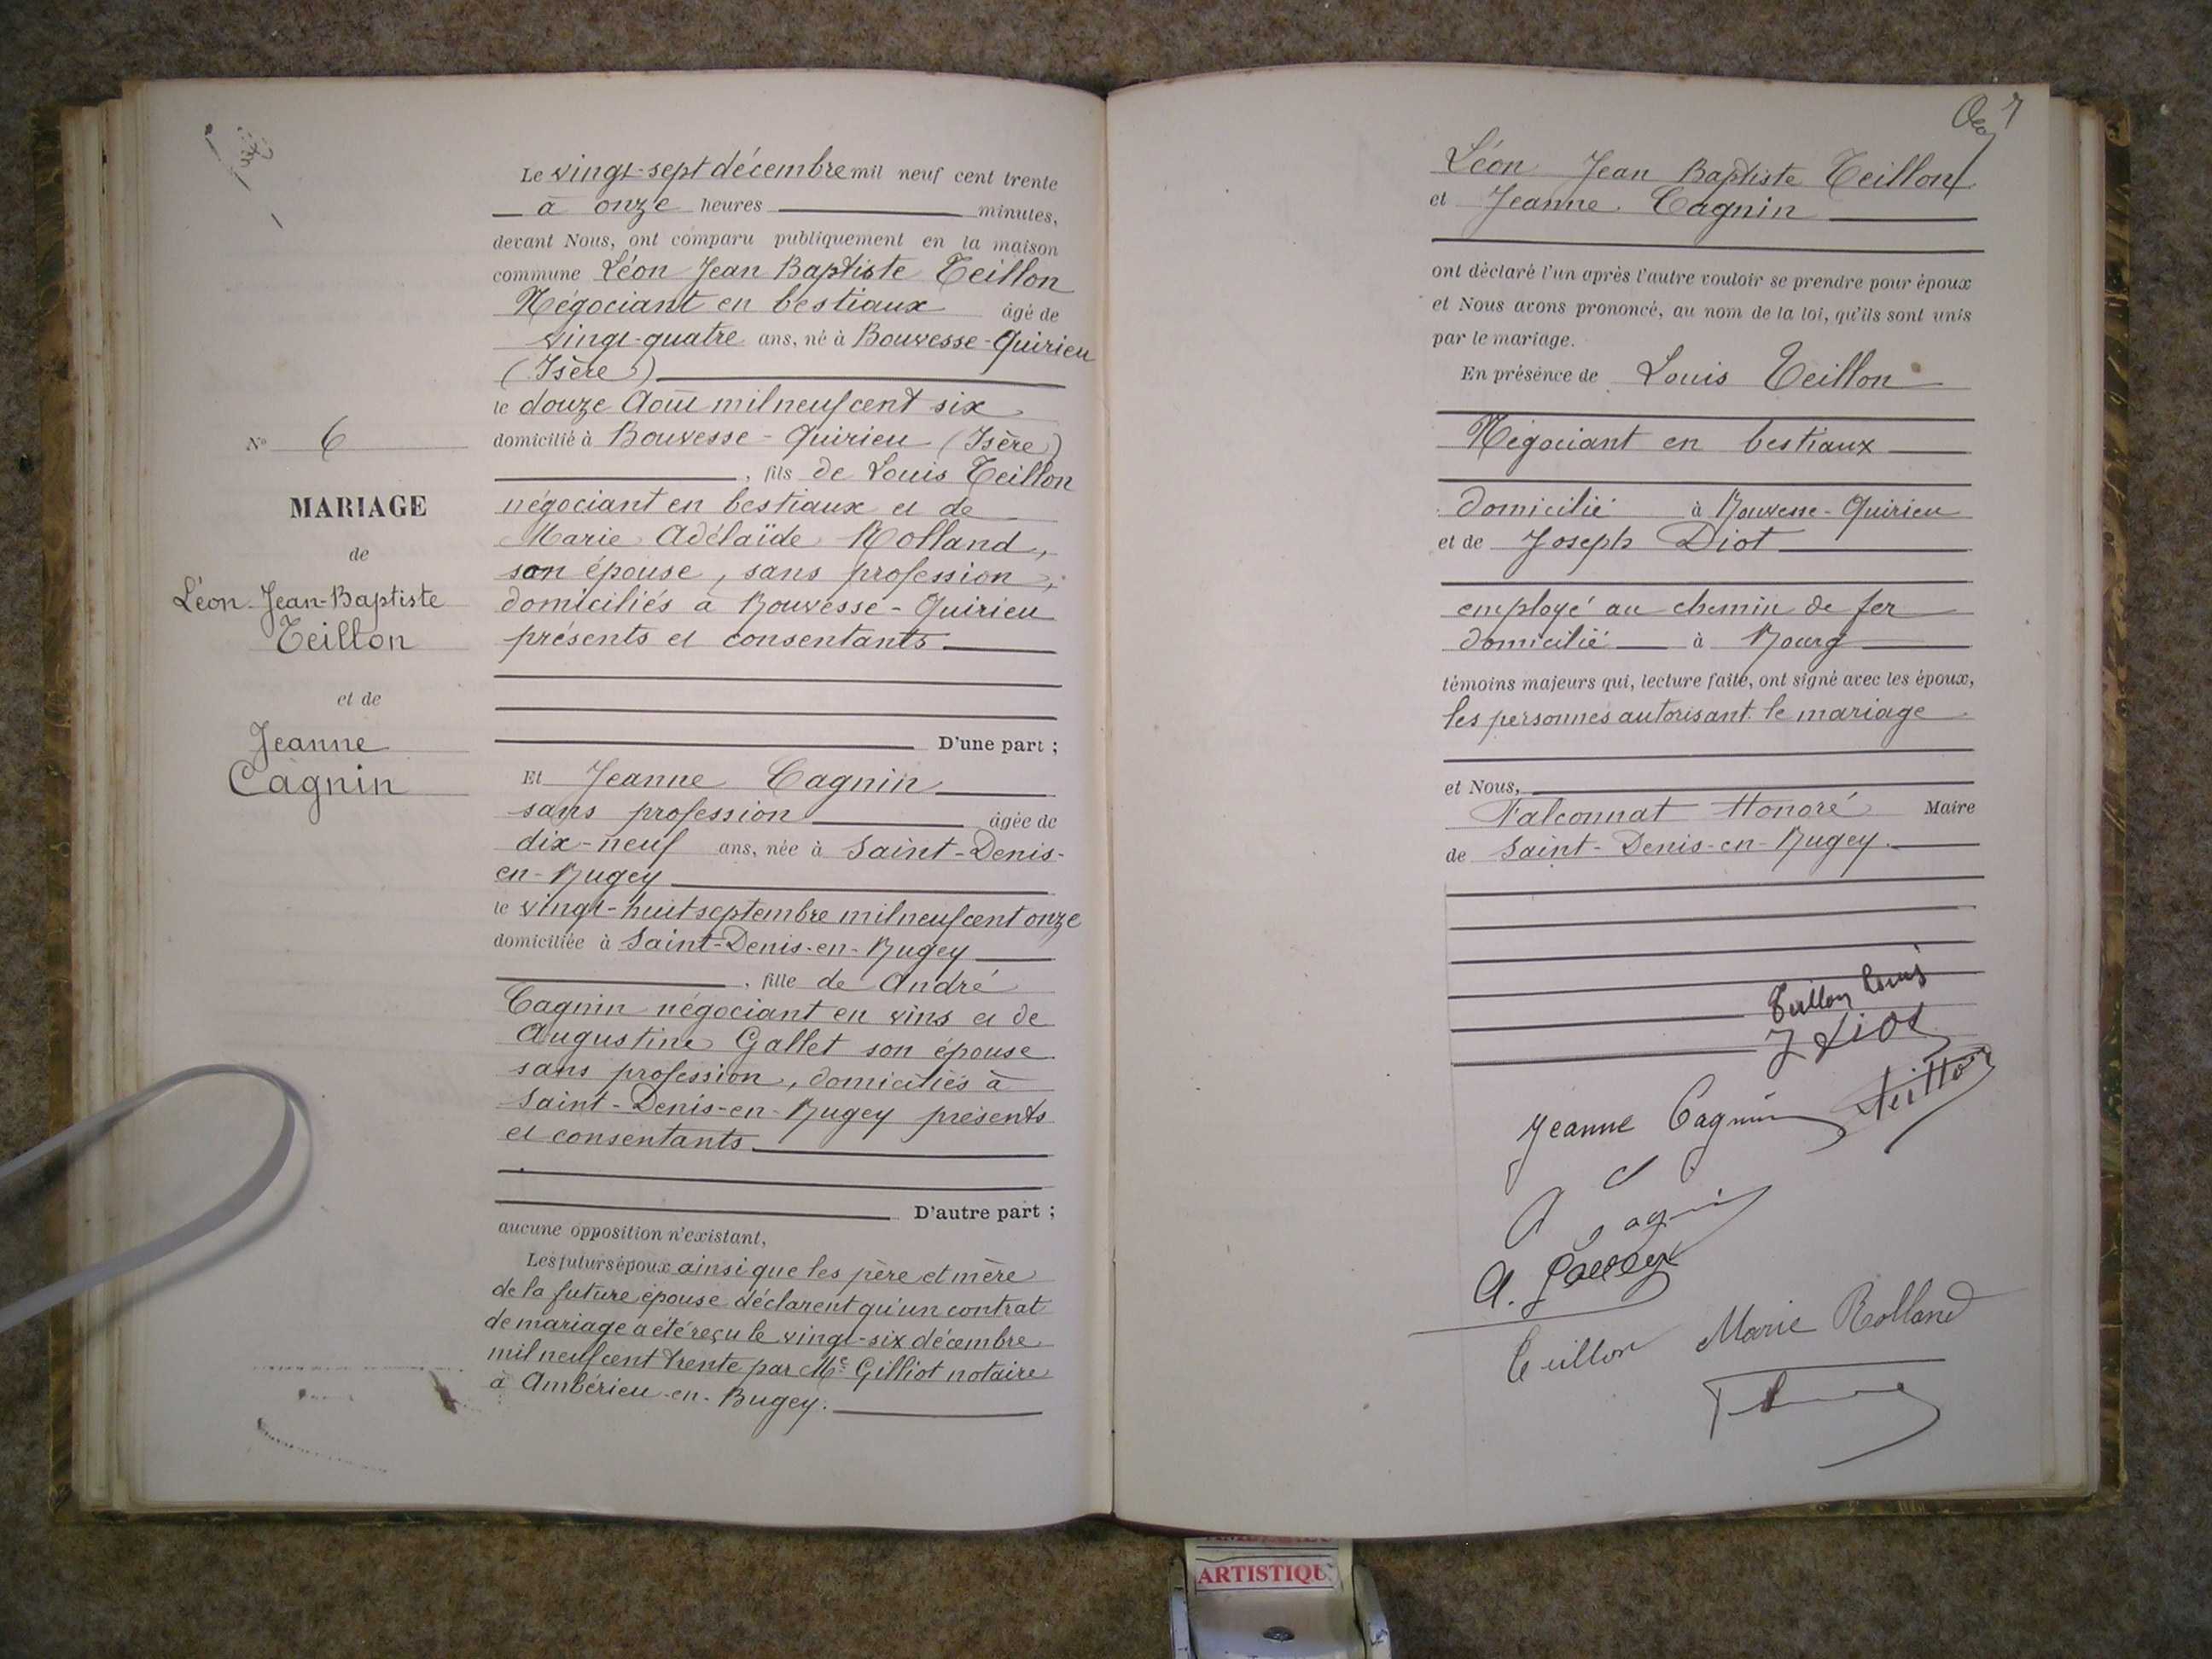 Le vingt-sept décembre mil neuf cent trente
à onze heures minutes,
devant Nous, ont comparu publiquement en la maison
commune Léon Jean Baptiste Teillon
Négociant en bestiaux âgé de
vingt-quatre ans, né à Bouvesse-Quirieu
(Isère)
le douze Août mil neuf cent six
domicilié à Bouvesse-Quirieu (Isère)
, fils de Louis Teillon
négociant en bestiaux et de
Marie Adélaïde Rolland,
son épouse, sans profession,
domiciliés à Bouvesse-Quirieu
présents et consentants
D'une part ;
Et Jeanne Cagnin
sans profession âgée de
dix-neuf ans, née à Saint-Denis-
en-Bugey
le vingt-huit septembre mil neuf cent onze
domiciliée à Saint-Denis-en-Bugey
, fille de André
Cagnin négociant en vins et de
Augustine Gallet son épouse
sans profession, domiciliés à
Saint-Denis-en-Bugey présents
et consentants
D'autre part ;
aucune opposition n'existant,
Les futurs époux ainsi que les père et mère
de la future épouse déclarent qu'un contrat
de mariage a été reçu le vingt-six décembre
mil neuf cent trente par Me Gilliot notaire
à Ambérieu-en-Bugey.
N° 6
MARIAGE
de
Léon-Jean-Baptiste
Teillon
et de
Jeanne
Cagnin
7
Léon Jean Baptiste Teillon
et Jeanne Cagnin
ont déclaré l'un après l'autre vouloir se prendre pour époux
et Nous avons prononcé, au nom de la loi, qu'ils sont unis
par le mariage.
En présence de Louis Teillon
Négociant en bestiaux
domicilié à Bouvesse-Quirieu
et de Joseph Diot
employé au chemin de fer
domicilié à Bourg
témoins majeurs qui, lecture faite, ont signé avec les époux,
les personnes autorisant le mariage
et Nous,
Falconnat Honoré Maire
de Saint-Denis-en-Bugey.
Teillon Louis
J Diot
Jeanne Cagnin Teillon
A Cagnin
Teillon Marie Rolland
ARTISTIQU